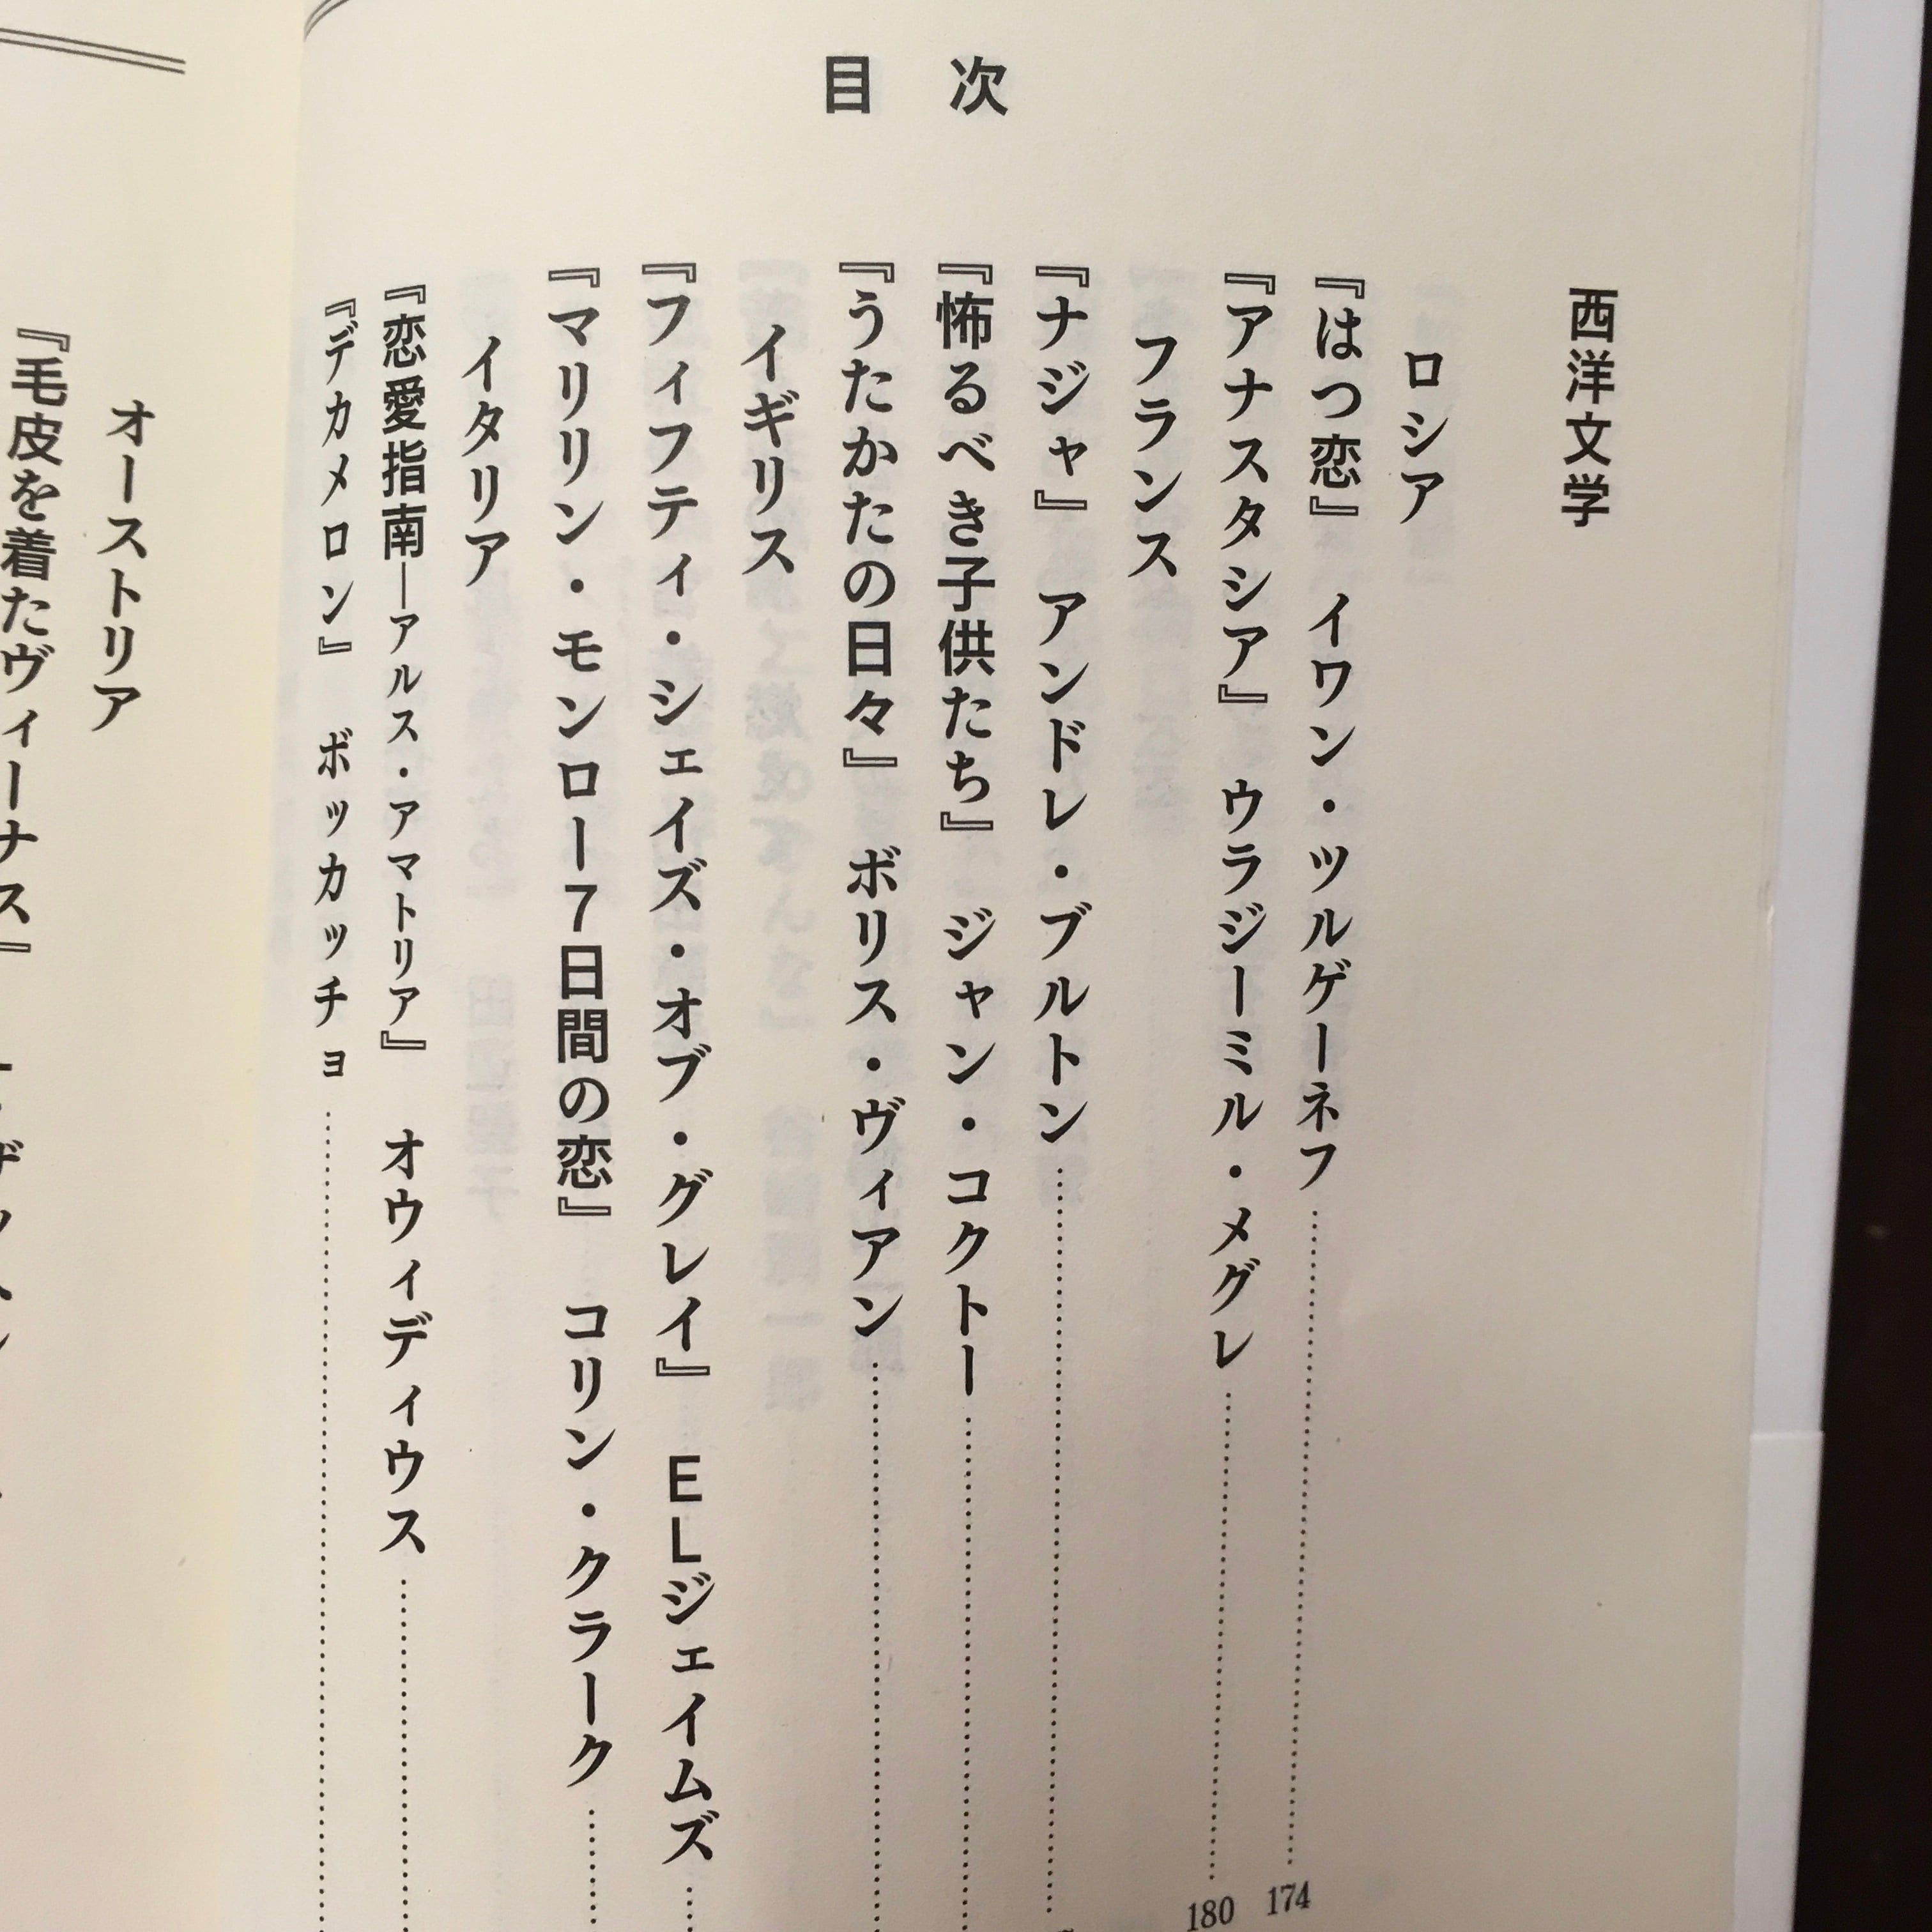 目次
西洋文学
ロシア
『はつ恋』 イワン・ツルゲーネフ 174
『アナスタシア』 ウラジーミル・メグレ 180
フランス
『ナジャ』 アンドレ・ブルトン
『怖るべき子供たち』 ジャン・コクトー
『うたかたの日々』 ボリス・ヴィアン
イギリス
『フィフティ・シェイズ・オブ・グレイ』 ELジェイムズ
『マリリン・モンロー7日間の恋』 コリン・クラーク
イタリア
『恋愛指南―アルス・アマトリア』 オウィディウス
『デカメロン』 ボッカッチョ
オーストリア
『毛皮を着たヴィーナス』